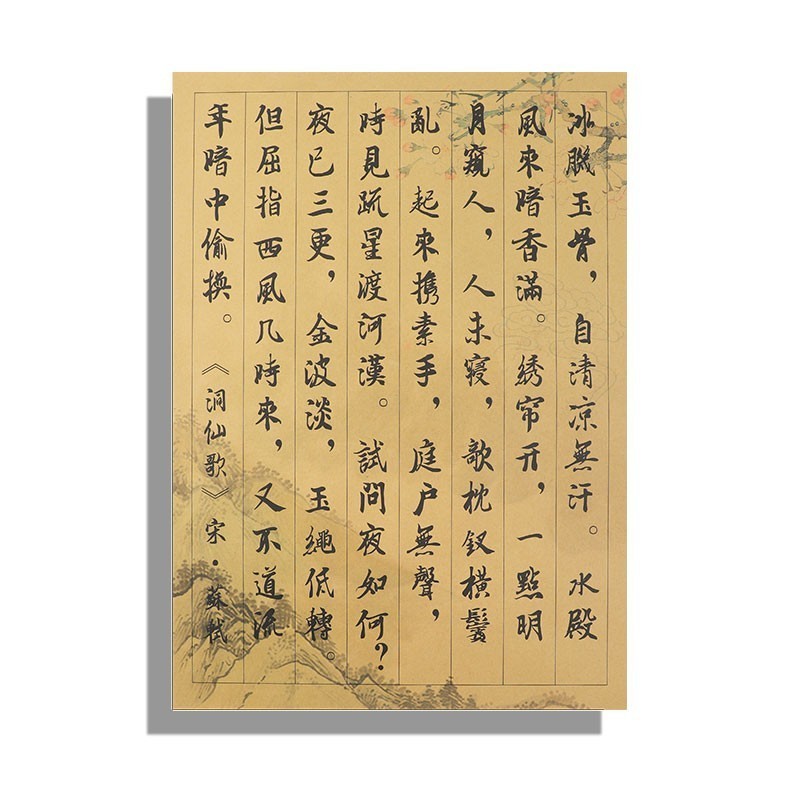 冰肌玉骨，自清凉無汗。水殿
風來暗香滿。绣帘开，一點明
月窺人，人未寝，歌枕钗橫鬢
亂。起來携素手，庭户無聲，
時見疏星渡河漢。試問夜如何?
夜已三更，金波淡，玉繩低轉。
但屈指西風几時來，又不道流
年暗中偷换。《洞仙歌》宋·蘇軾